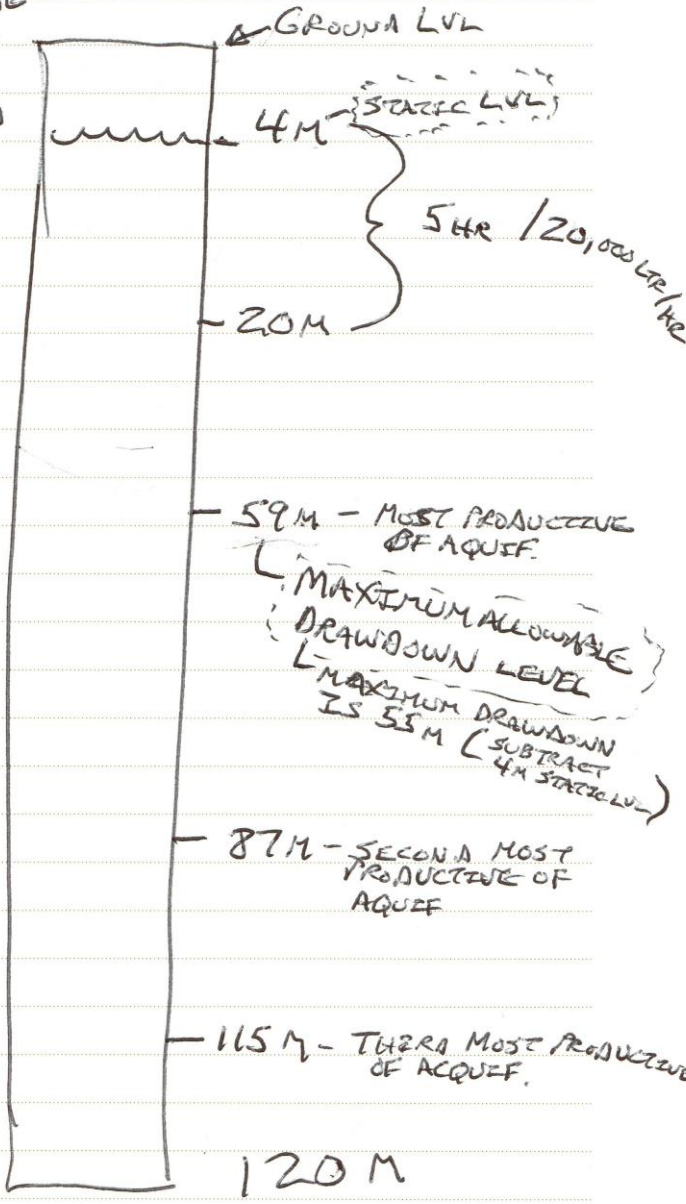 GROUND LVL
4M STATIC LVL
5 HR / 20,000 LTR/HR
20M
59M - MOST PRODUCTIVE
OF AQUIF.
MAXIMUM ALLOWABLE
DRAWDOWN LEVEL
MAXIMUM DRAWDOWN
IS 55M (SUBTRACT
4M STATIC LVL)
87M - SECOND MOST
PRODUCTIVE OF
AQUIF
115 M - THIRD MOST PRODUCTIVE
OF ACQUIF.
120 M